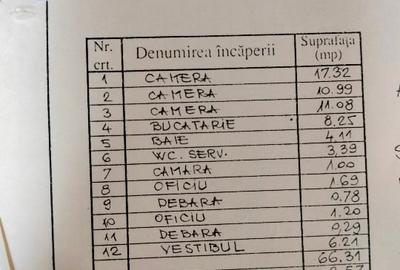 Nr. crt. Denumirea încăperii Suprafața (mp)
1 CAMERA 17.32
2 CAMERA 10.99
3 CAMERA 11.08
4 BUCATARIE 8.25
5 BAIE 4.11
6 WC. SERV. 3.39
7 CAMARA 1.00
8 OFICIU 1.69
9 DEBARA 0.78
10 OFICIU 1.20
11 DEBARA 0,29
12 VESTIBUL 6.21
66.31